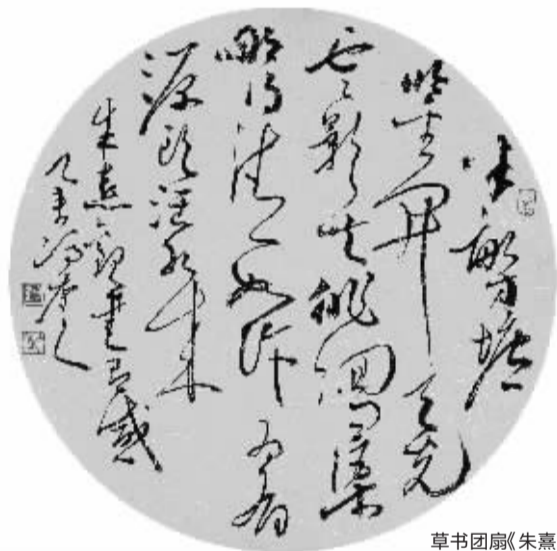 半亩方塘一
鉴开天光
云影共徘徊问渠
那得清如许为有
源头活水来
朱熹观书有感
乙未
草书团扇《朱熹